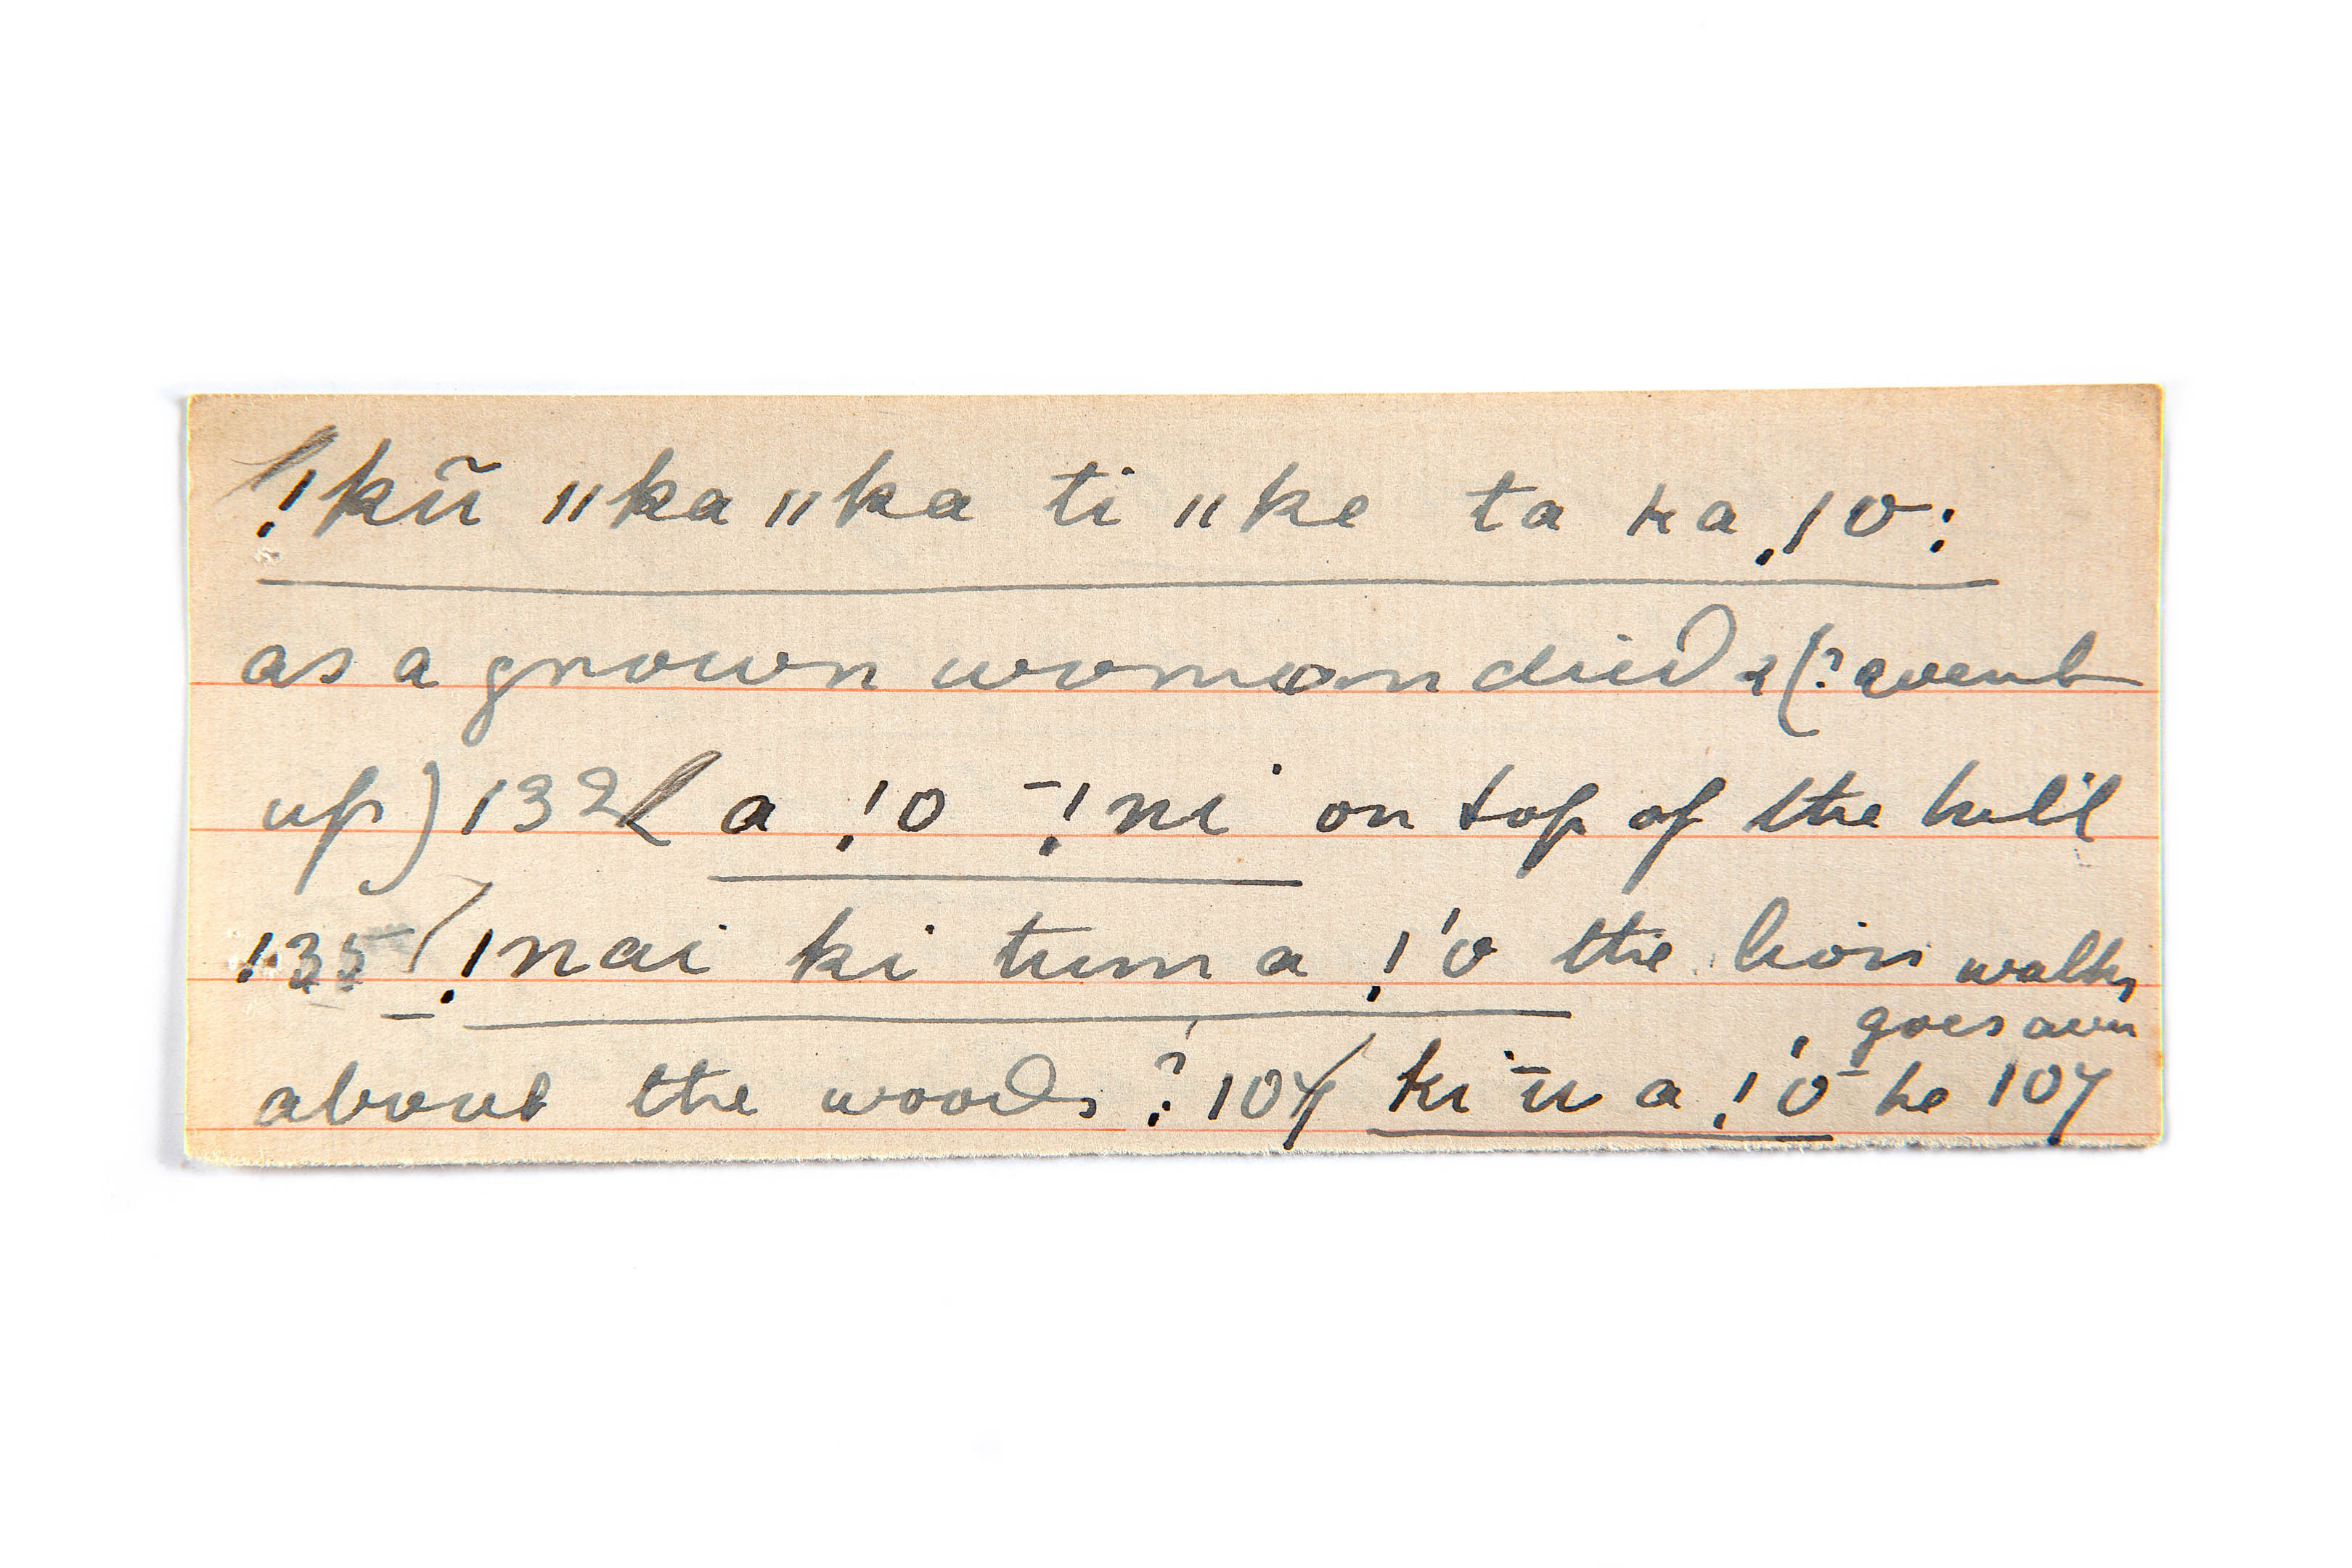 !kũ ǁkaǁka ti ǁke ta ka !o:
as a grown woman died (? went
up) 132 a !o ¯!ni on top of the hill
135 !nai ki tum a !'o the lion walks
goes awa
about the woods ? 107 ki ū a !'o he 107